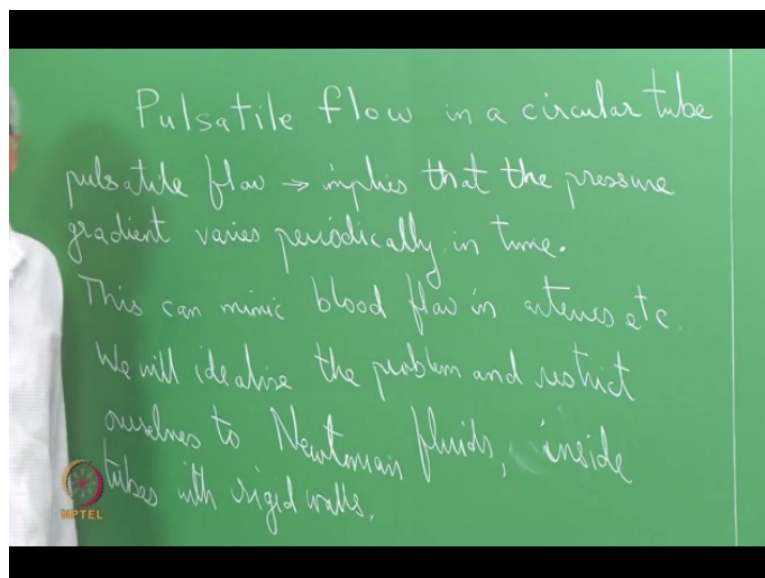 Pulsatile flow in a circular tube
pulsatile flow → implies that the pressure
gradient varies periodically in time.
This can mimic blood flow in arteries etc.
We will idealise the problem and restrict
ourselves to Newtonian fluids, inside
tubes with rigid walls.
NPTEL